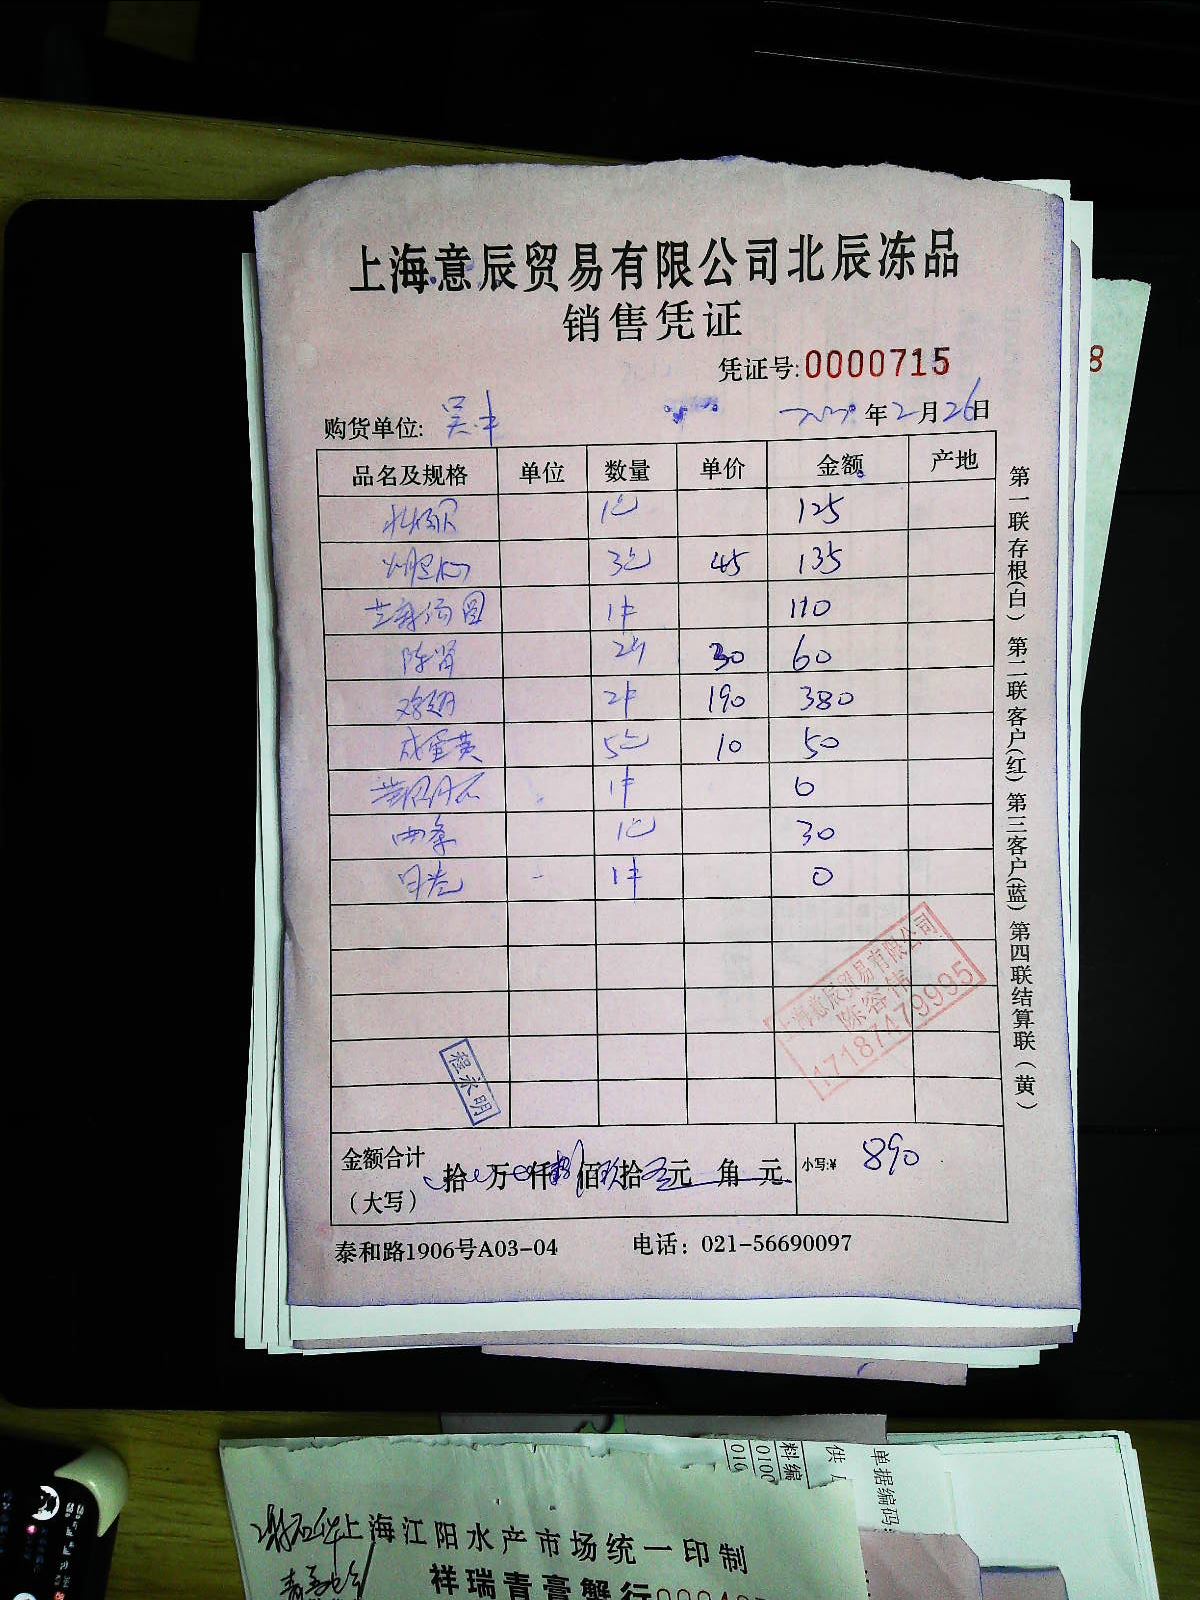 上海意辰贸易有限公司北辰冻品
销售凭证
凭证号:0000715
购货单位: 吴丰 年2月26日
品名及规格 单位 数量 单价 金额 产地
1包 125
3包 45 135
芝麻汤圆 1件 110
2件 30 60
鸡翅 2件 190 380
咸蛋黄 5包 10 50
1件 6
1包 30
1件 0
上海意辰贸易有限公司
陈容伟
17187479995
程永明
金额合计
(大写) 拾 万 仟捌佰玖拾 元 角 元 小写:¥ 890
泰和路1906号A03-04 电话: 021-56690097
第一联存根(白) 第二联客户(红) 第三客户(蓝) 第四联结算联(黄)
8
料编
010
供
单据编码:
上海江阳水产市场统一印制
祥瑞青膏蟹行